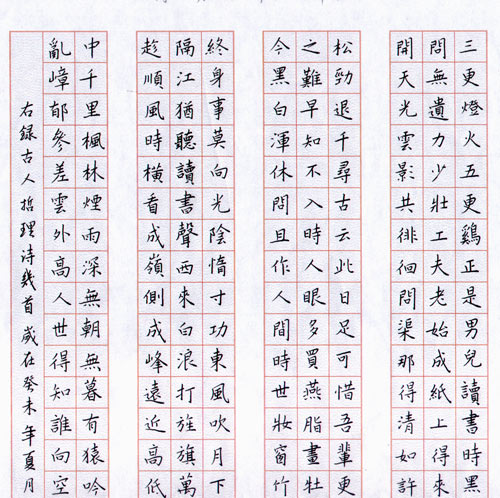 三更燈火五更鷄正是男兒讀書時黑
問無遺力少壯工夫老始成紙上得來
開天光雲影共徘徊問渠那得清如許
松勁退千尋古云此日足可惜吾輩更
之難早知不入時人眼多買燕脂畫牡
今黑白渾休問且作人間時世妝窗竹
終身事莫向光陰惰寸功東風吹月下
隔江猶聽讀書聲西來白浪打旌旗萬
趁順風時橫看成嶺側成峰遠近高低
中千里楓林煙雨深無朝無暮有猿吟
亂嶂郁參差雲外高人世得知誰向空
右録古人哲理诗幾首歲在癸未年夏月